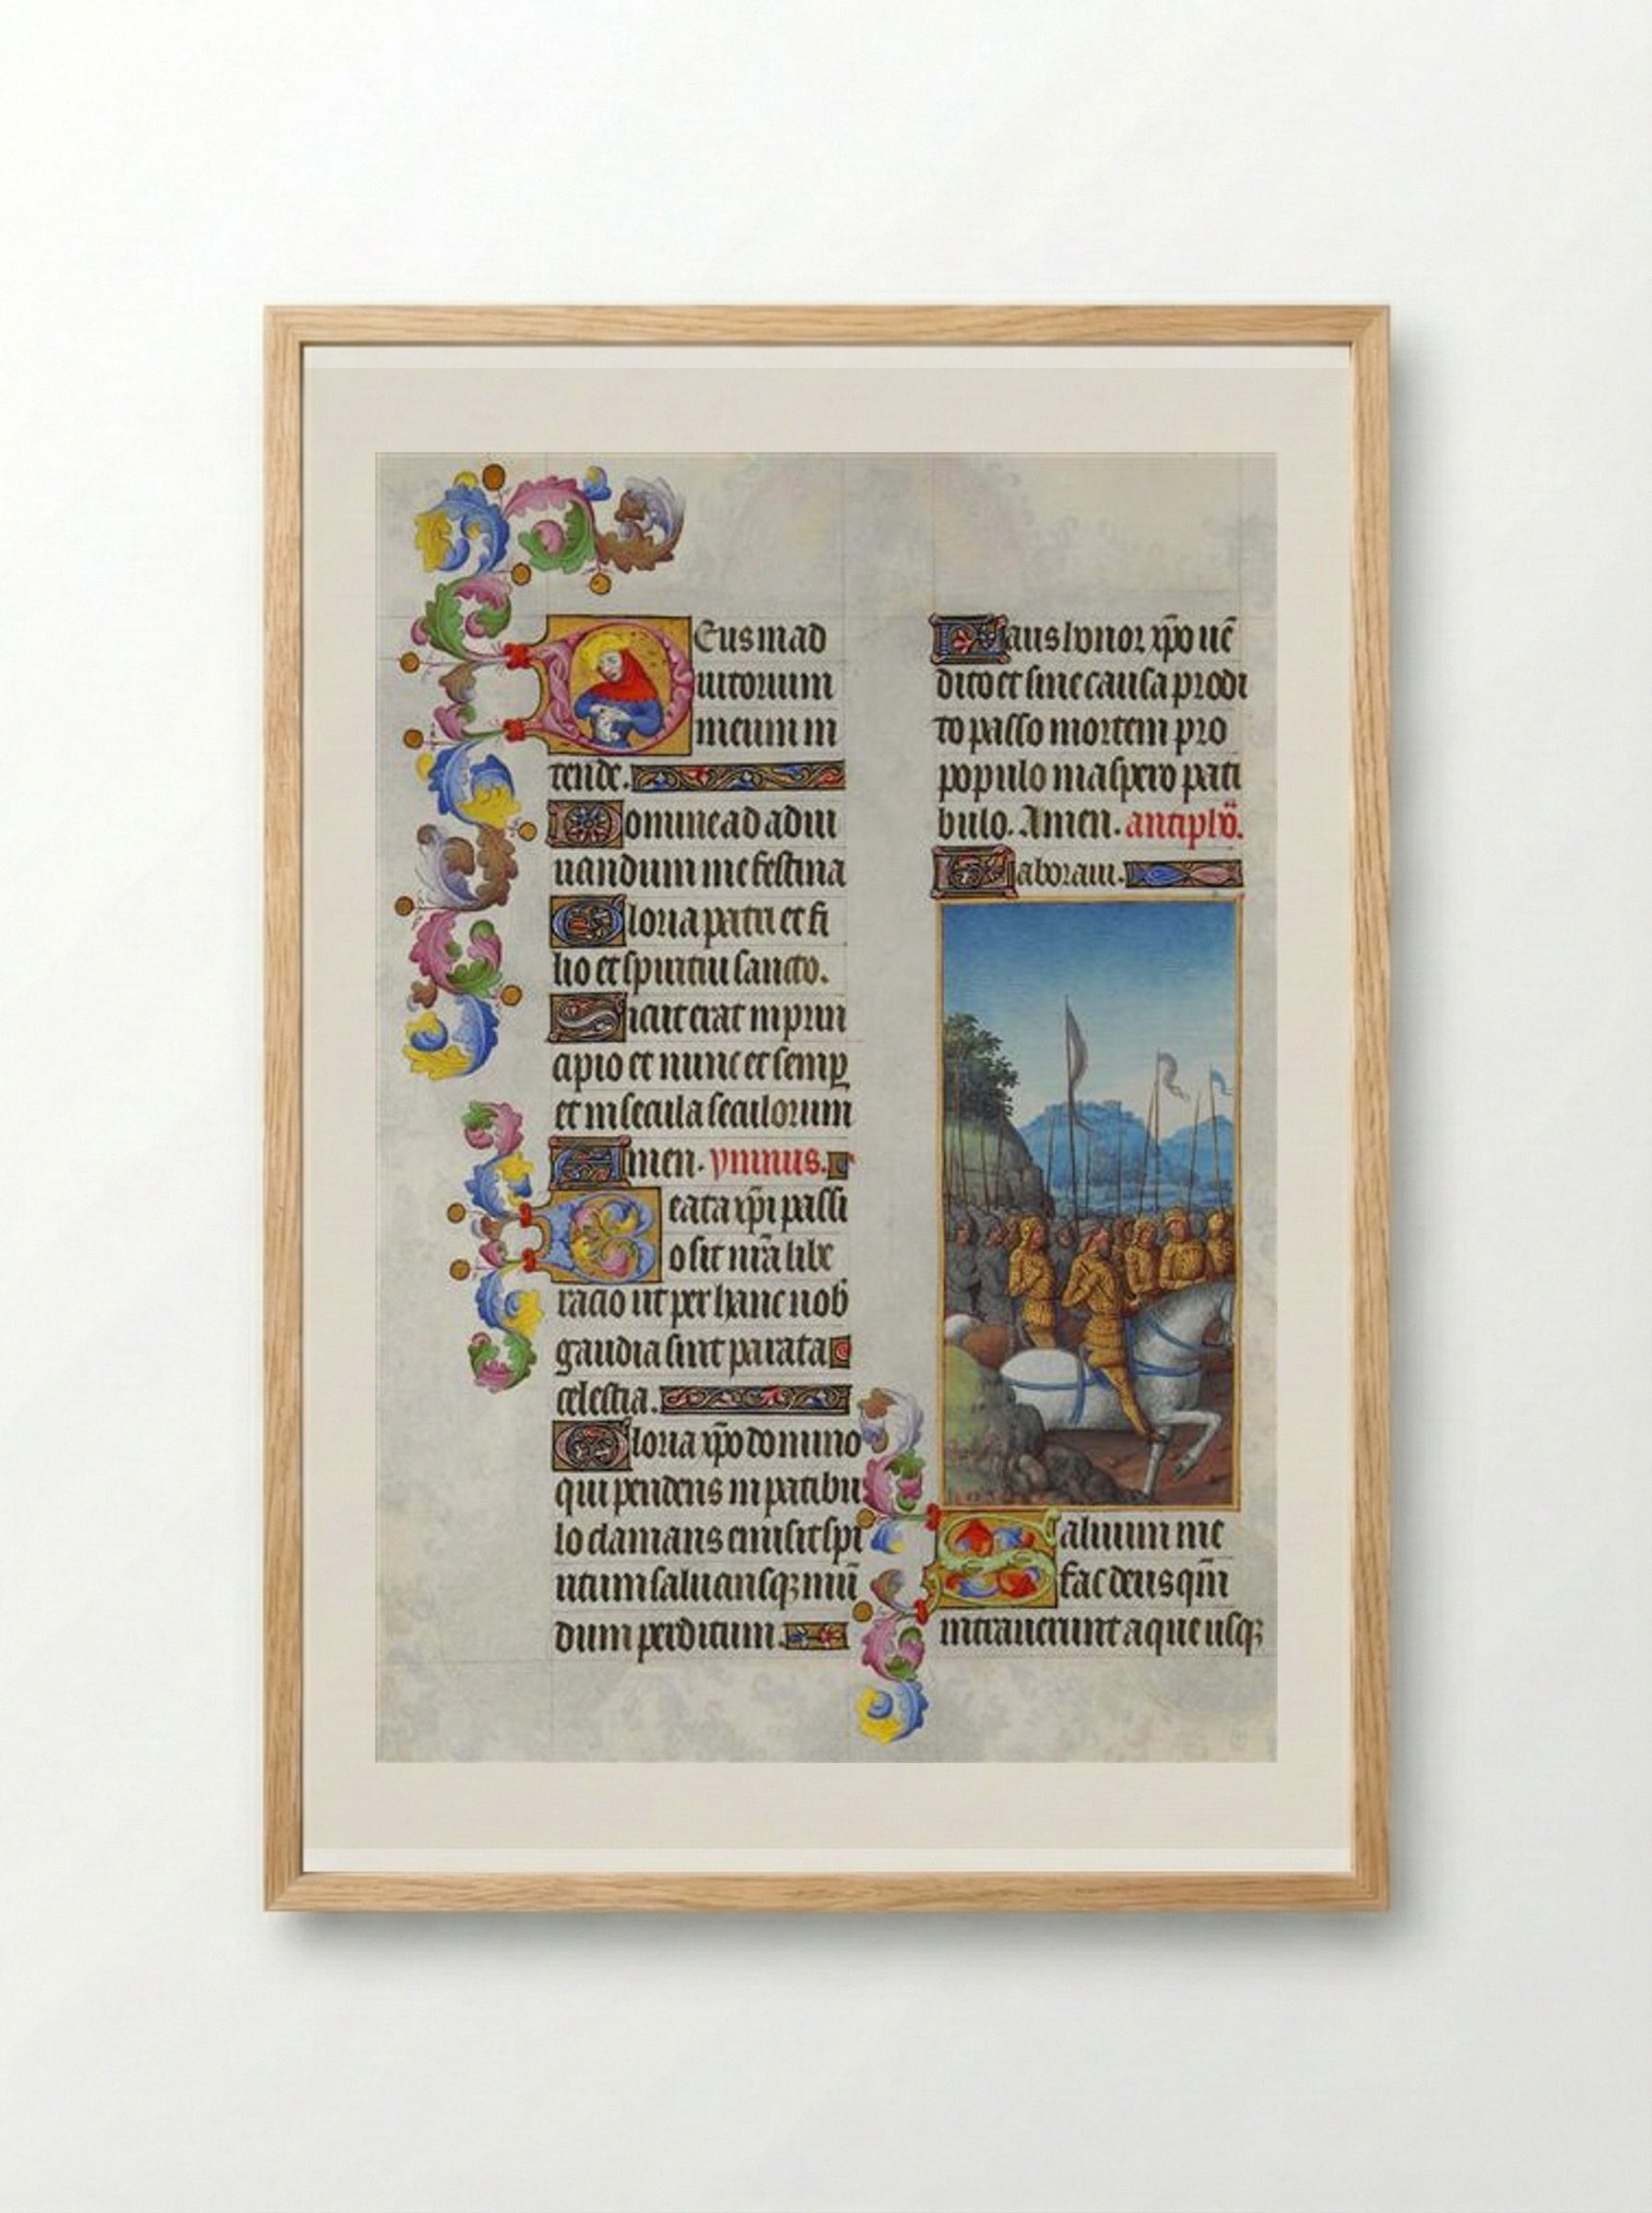 Deus in ad
iutorium
meum in
tende.
Domine ad adiu
uandum me festina
Gloria patri et fi
lio et spiritui sancto.
Sicut erat in prin
cipio et nunc et semꝑ
et in secula seculorum
Amen. ymnus.
Beata xp̄i passi
o sit nr̄a libe
racio ut per hanc nob̄
gaudia sint parata
celestia.
Gloria xp̄o domino
qui pendens in patibu
lo clamans emisit spi
ritum saluansqꝫ mū
dum perditum.
Laus honor xp̄o uē
dito et sine causa prodi
to passo mortem pro
populo in aspero pati
bulo. Amen. antiphō.
Laboraui.
Saluum me
fac deus qm̄
intrauerunt aque usqꝫ